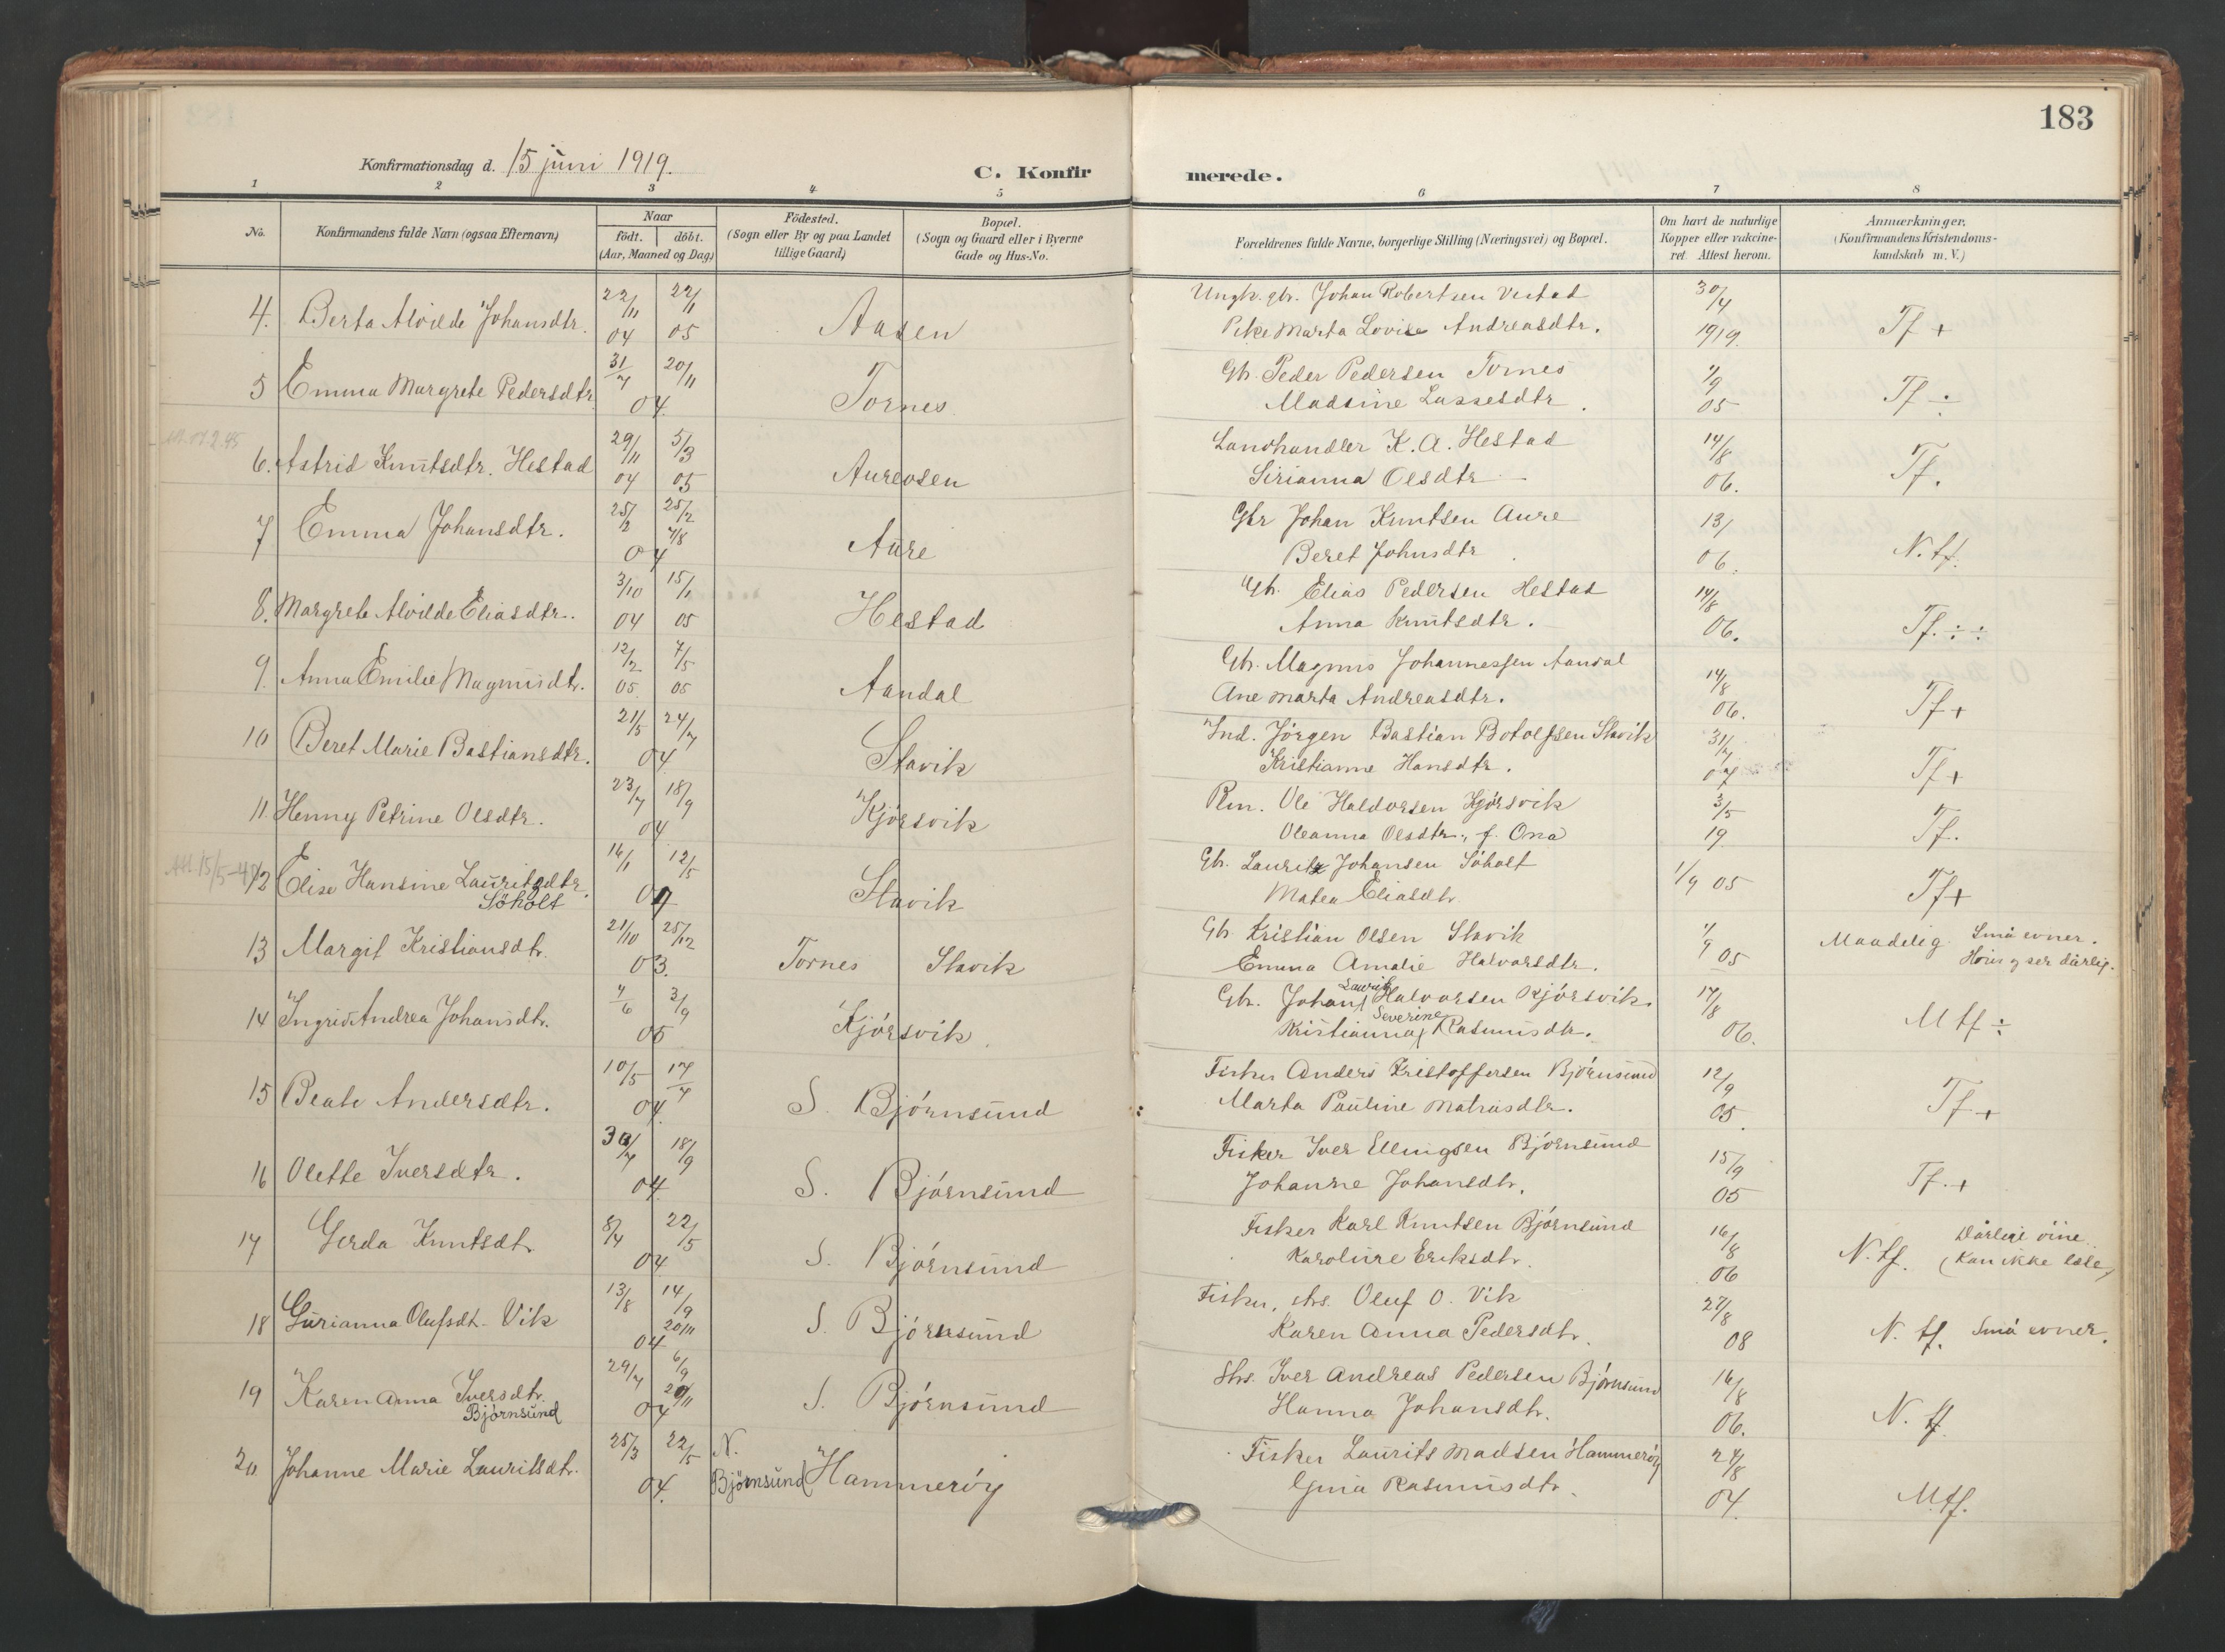 183
Konfirmationsdag d. 15 juni 1919.
C. Konfir merede.
1 2 3 4 5 6 7 8
No.
Konfirmandens fulde Navn (ogsaa Efternavn)
Naar
födt. döbt.
(Aar, Maaned og Dag)
Födested.
(Sogn eller By og paa Landet
tillige Gaard)
Bopæl.
(Sogn og Gaard eller i Byerne
Gade og Hus-No.
Forældrenes fulde Navne, borgerlige Stilling (Næringsvei) og Bopæl.
Om havt de naturlige
Kopper eller vakcine-
ret. Attest herom.
Anmærkninger,
(Konfirmandens Kristendoms-
kundskab m. V.)
4. Berta Alvilde Johansdtr. 22/11 04 22/1 05 Aasen Ungk. gbr. Johan Robertsen Vestad 30/4 1919. Tf +
Pike Marta Lovise Andreasdtr.
5 Emma Margrete Pedersdtr. 31/7 20/11 04. Tornes Gbr. Peder Pedersen Tornes 1/9 05 Tf ÷
Madsine Lassesdtr.
6. Astrid Knutsdtr. Hestad 29/11 04 5/3 05 Aureosen Landhandler K. A. Hestad 14/8 06. Tf.
Sirianna Olsdtr
7 Emma Johansdtr. 25/2 25/2 7/8 04 Aure Gbr Johan Knutsen Aure 13/ 06. N. tf.
Beret Johnsdtr
8. Margrete Alvilde Eliasdtr. 3/10 04 15/1 05 Hestad Gb. Elias Pedersen Hestad 14/8 06. Tf. ÷ ÷
Anna Knutsdtr.
9. Anna Emilie Magnusdtr. 12/2 05 7/5 05 Aandal Gb. Magnus Johannessen Aandal 14/8 06. Tf +
Ane Marta Andreasdtr.
10 Beret Marie Bastiansdtr. 21/5 24/7 04 Stavik Ind. Jörgen Bastian Botolfsen Stavik 31/7 07 Tf +
Kristianne Hansdtr.
11. Henny Petrine Olsdtr. 23/7 18/9 04 Kjörsvik Rm. Ole Haldorsen Kjörsvik 3/5 19 Tf.
Oleanna Olsdtr., f. Ona
12 Elise Hansine Lauritzdtr. 16/1 12/5 Stavik Gb. Lauritz Johansen Söholt 1/9 05 Tf +
Söholt Matea Eliasdtr.
13 Margit Kristiansdtr. 21/10 25/12 03. Tornes Stavik Gb. Kristian Olsen Stavik 1/9 05 Maadelig. Små evner.
Emma Amalie Halvorsdtr. Höris og ser dårlig.
14 Ingrid Andrea Johansdtr. 4/6 3/9 05 Kjörsvik. Gb. Johan Laurits Halvorsen Kjörsvik. 14/8 06. M tf ÷
Kristianna Severine Rasmusdtr.
15 Beate Andersdtr. 10/5 17/7 04. S. Björnsund Fisker Anders Kristoffersen Björnsund 12/9 05. Tf +
Marta Pauline Matiasdtr.
16 Olette Iversdtr. 30/7 18/9 04. S. Björnsund Fisker Iver Ellingsen Björnsund 15/9 05 Tf. +
Johanne Johansdtr.
17 Gerda Knutsdtr. 8/4 22/5 04 S. Björnsund Fisker Karl Knutsen Björnsund 16/8 06 N. tf. Dårlige öine.
Karoline Eriksdtr. (Kan ikke læse)
18 Gurianna Olufsdt. Vik 13/8 14/9 20/11 04 S. Björnsund Fisker, shs. Oluf O. Vik 27/8 08 N. tf. Små evner.
Karen Anna Pedersdtr.
19 Karen Anna Iversdtr. 29/7 6/9 20/11 04 S. Björnsund Shs. Iver Andreas Pedersen Björnsund 16/8 06. N. tf
Björnsund Hanna Johansdtr.
20 Johanne Marie Lauritsdtr. 25/3 22/5 04. N. Björnsund Hammeröy Fisker Laurits Madsen Hammeröy 24/8 04. M. tf.
Gina Rasmusdtr.